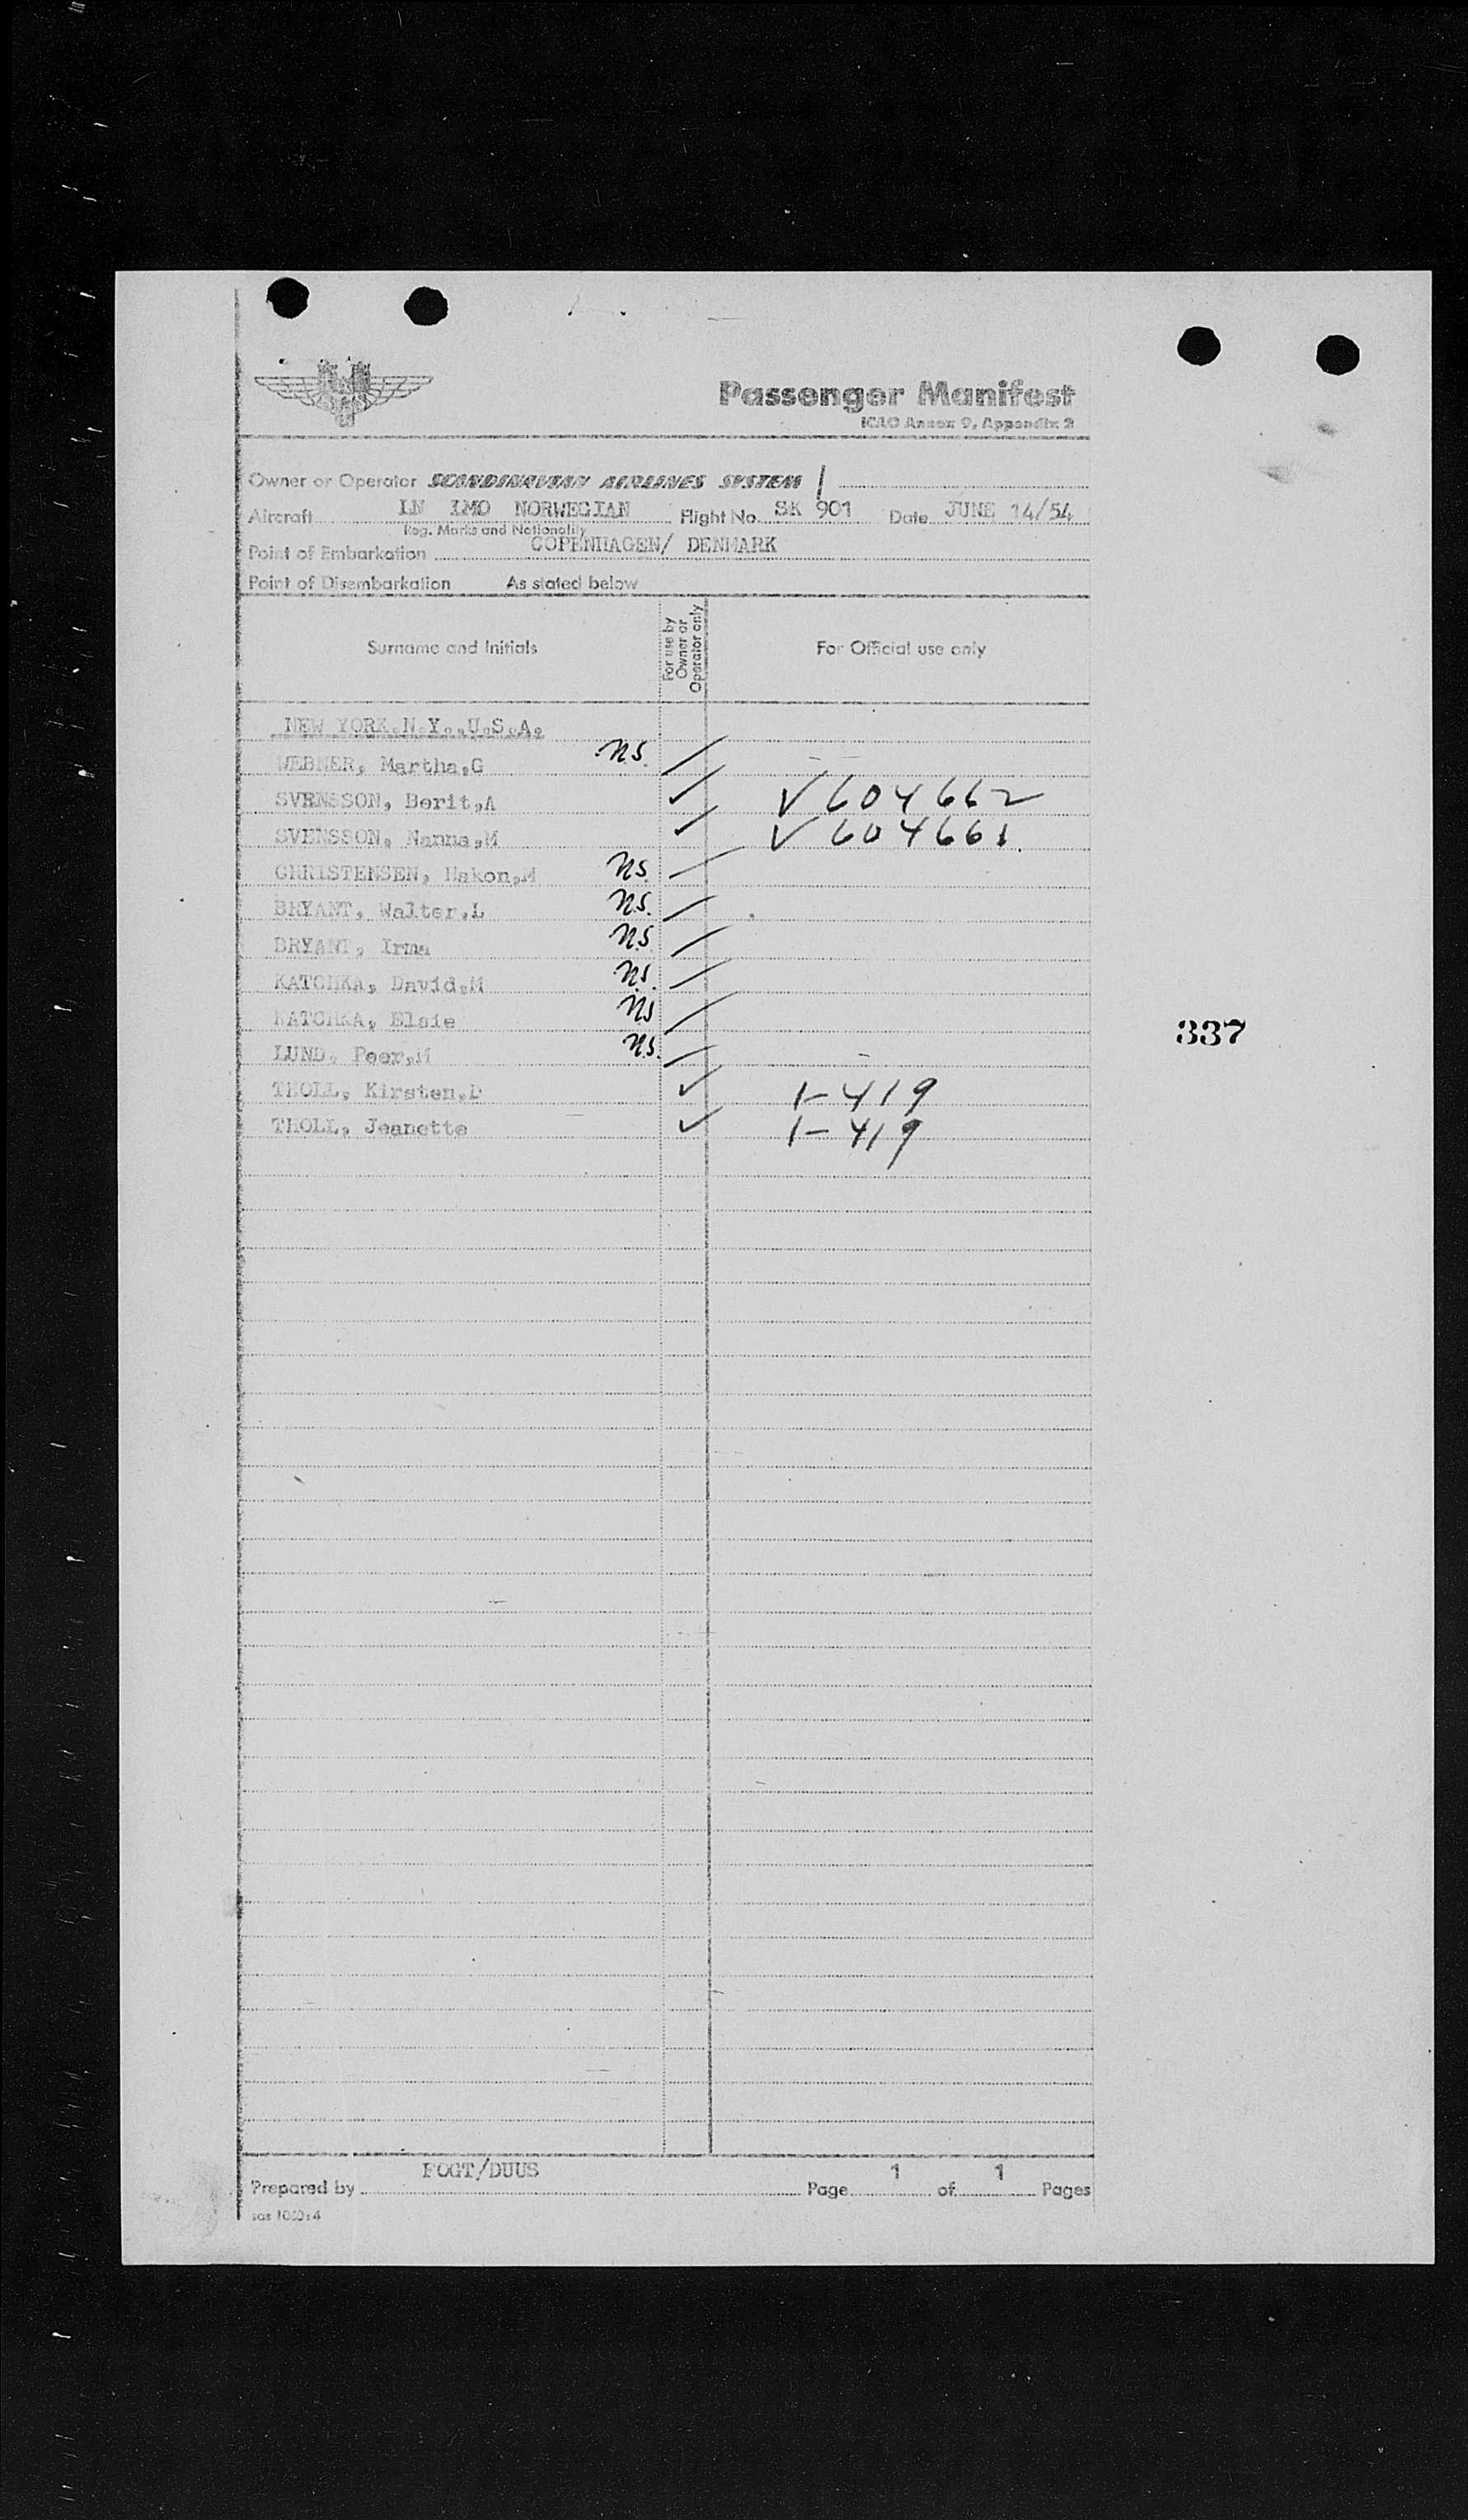 Passenger Manifest
ICAO Annex 9, Appendix 2
Owner or Operator SCANDINAVIAN AIRLINES SYSTEM
Aircraft LN IMO NORWEGIAN Flight No. SK 901 Date JUNE 14/54
Reg. Marks and Nationality
Point of Embarkation COPENHAGEN/ DENMARK
Point of Disembarkation As stated below
Surname and Initials For use by Owner or Operator only For Official use only
NEW YORK.N.Y.,U.S.A.
WEBNER, Martha,G n.s.
SVENSSON, Berit,A ✓ ✓ 604662
SVENSSON, Nanna,M ✓ ✓ 604661.
CHRISTENSEN, Hakon,M n.s.
BRYANT, Walter,L n.s.
BRYANT, Irma n.s
KATCHKA, David,M n.s.
KATCHKA, Elsie n.s
337
LUND, Peer,M n.s.
THOLL, Kirsten,D ✓ 1-419
THOLL, Jeanette ✓ 1-419
Prepared by FOGT/DUUS Page 1 of 1 Pages